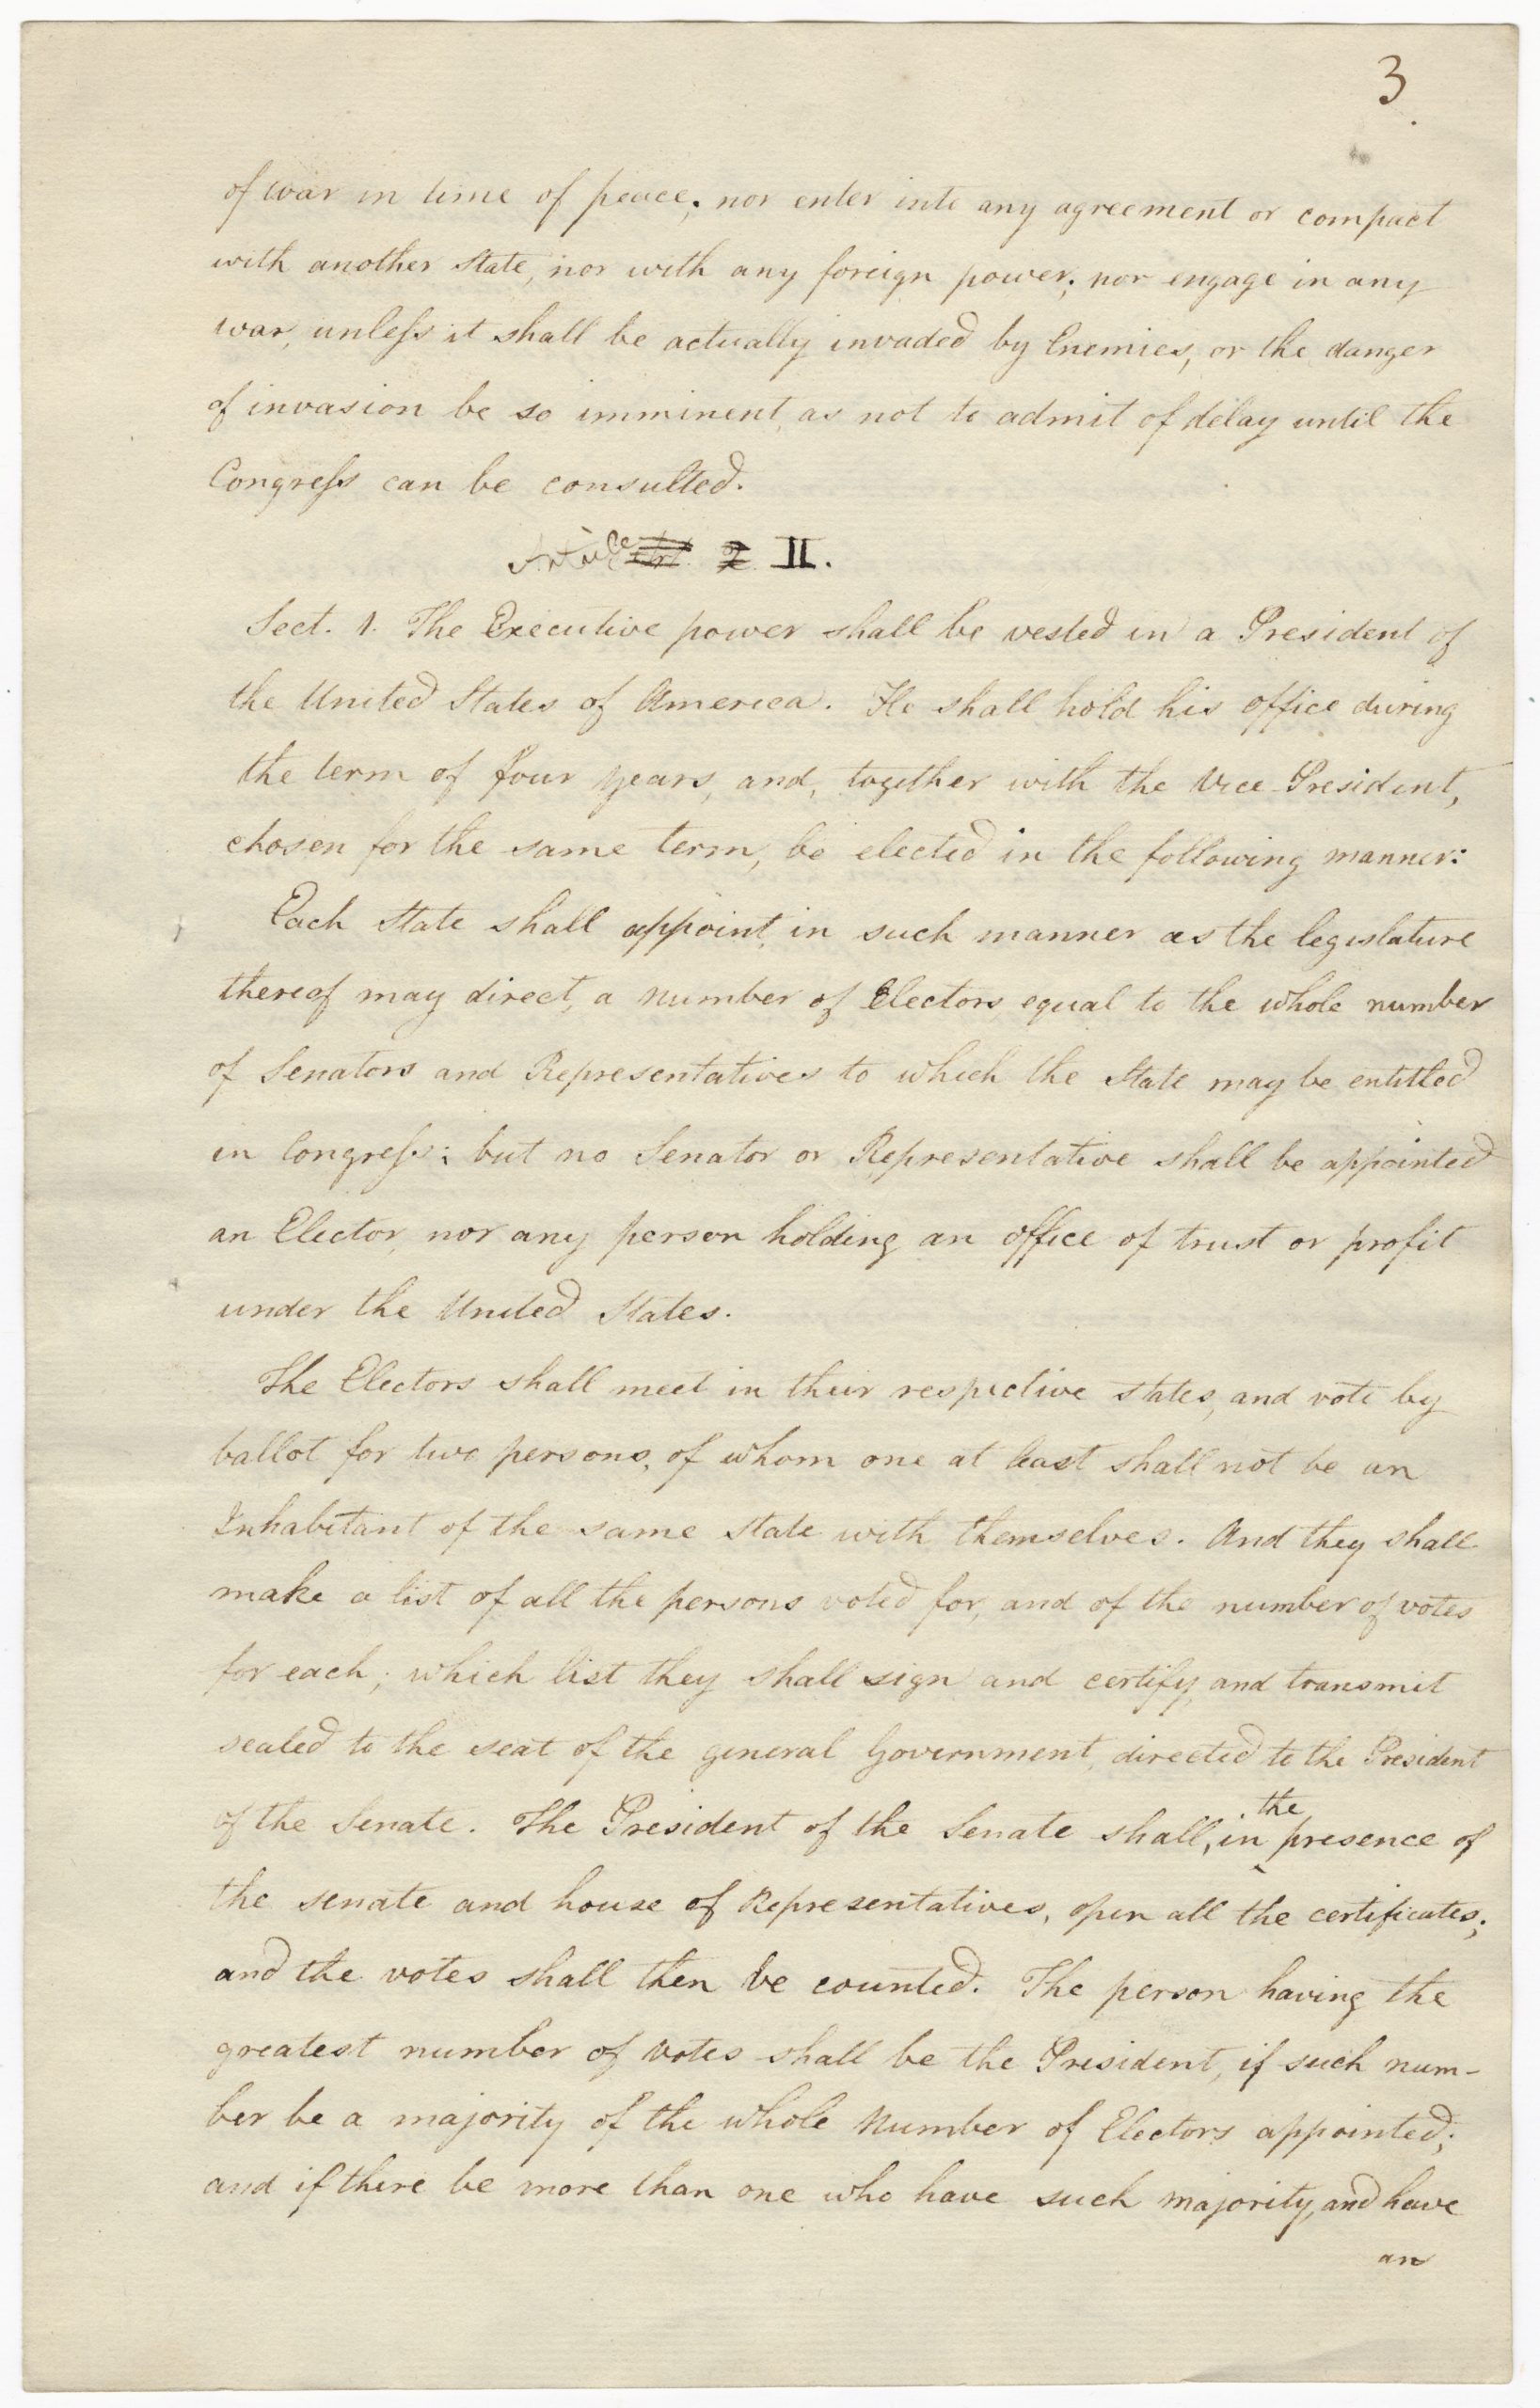 3
of war in time of peace; nor enter into any agreement or compact
with another State, nor with any foreign power; nor engage in any
war, unless it shall be actually invaded by Enemies, or the danger
of invasion be so imminent, as not to admit of delay until the
Congress can be consulted.
Article II.
Sect. 1. The Executive power shall be vested in a President of
the United States of America. He shall hold his office during
the term of four years, and, together with the Vice-President,
chosen for the same term, be elected in the following manner:
Each State shall appoint, in such manner as the legislature
thereof may direct, a number of Electors equal to the whole number
of Senators and Representatives to which the State may be entitled
in Congress; but no Senator or Representative shall be appointed
an Elector, nor any person holding an office of trust or profit
under the United States.
The Electors shall meet in their respective states, and vote by
ballot for two persons, of whom one at least shall not be an
Inhabitant of the same state with themselves. And they shall
make a list of all the persons voted for, and of the number of votes
for each; which list they shall sign and certify, and transmit
sealed to the seat of the general Government, directed to the President
of the Senate. The President of the Senate shall, in the presence of
the senate and house of Representatives, open all the certificates;
and the votes shall then be counted. The person having the
greatest number of votes shall be the President, if such num-
ber be a majority of the whole Number of Electors appointed;
and if there be more than one who have such majority, and have
an